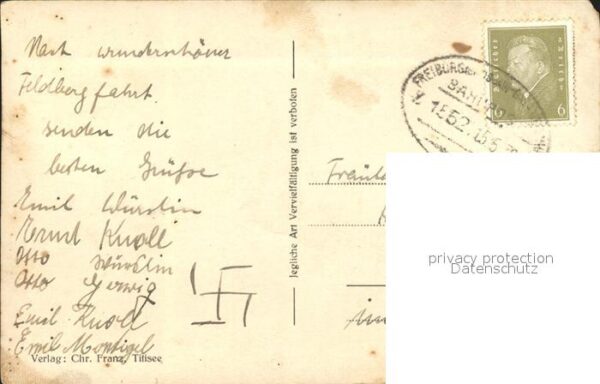 Nach wunderschöner
Feldbergfahrt
senden die
besten Grüße
Emil Würslin
Ernst Knoll
Otto Würslin
Otto Gerwig
Emil Knoll
Emil
Verlag: Chr. Franz, Titisee
Jegliche Art Vervielfältigung ist verboten
6 6
FREIBURG
BAHNPOST
1552
privacy protection
Datenschutz